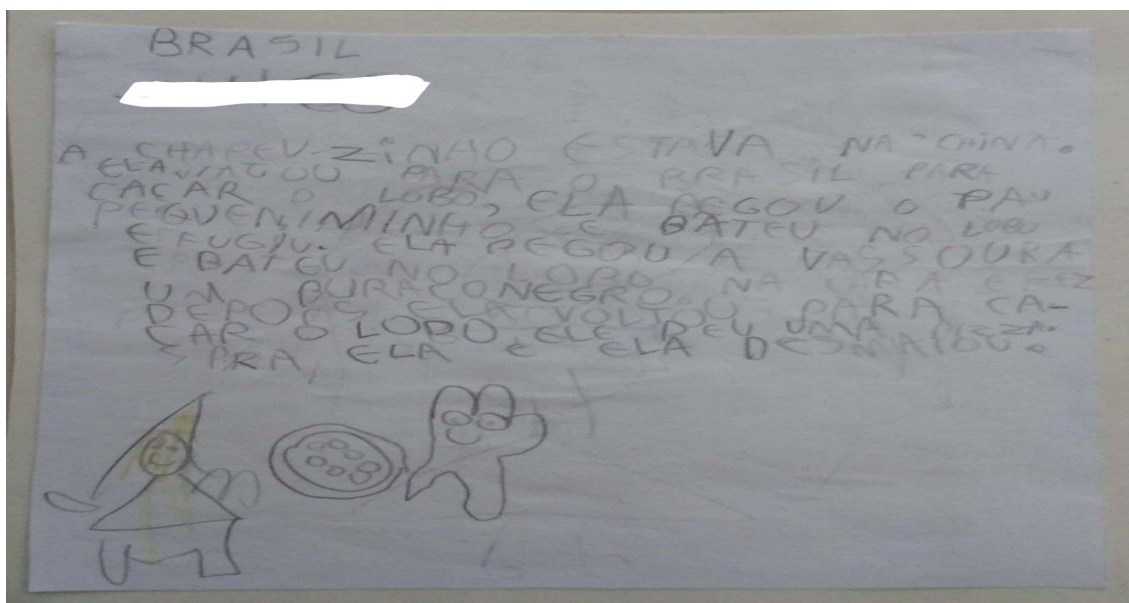 BRASIL
A CHAPEUZINHO ESTAVA NA CHINA.
ELA VIAJOU PARA O BRASIL PARA
CAÇAR O LOBO, ELA PEGOU O PAU
PEQUENIMINHO E BATEU NO LOBO
E FUGIU. ELA PEGOU A VASSOURA
E BATEU NO LOBO NA E FEZ
UM BURACONEGRO.
DEPOIS ELA VOLTOU PARA CA-
ÇAR O LOBO, ELE DEU UMA
PRA ELA E ELA DESMAIOU.